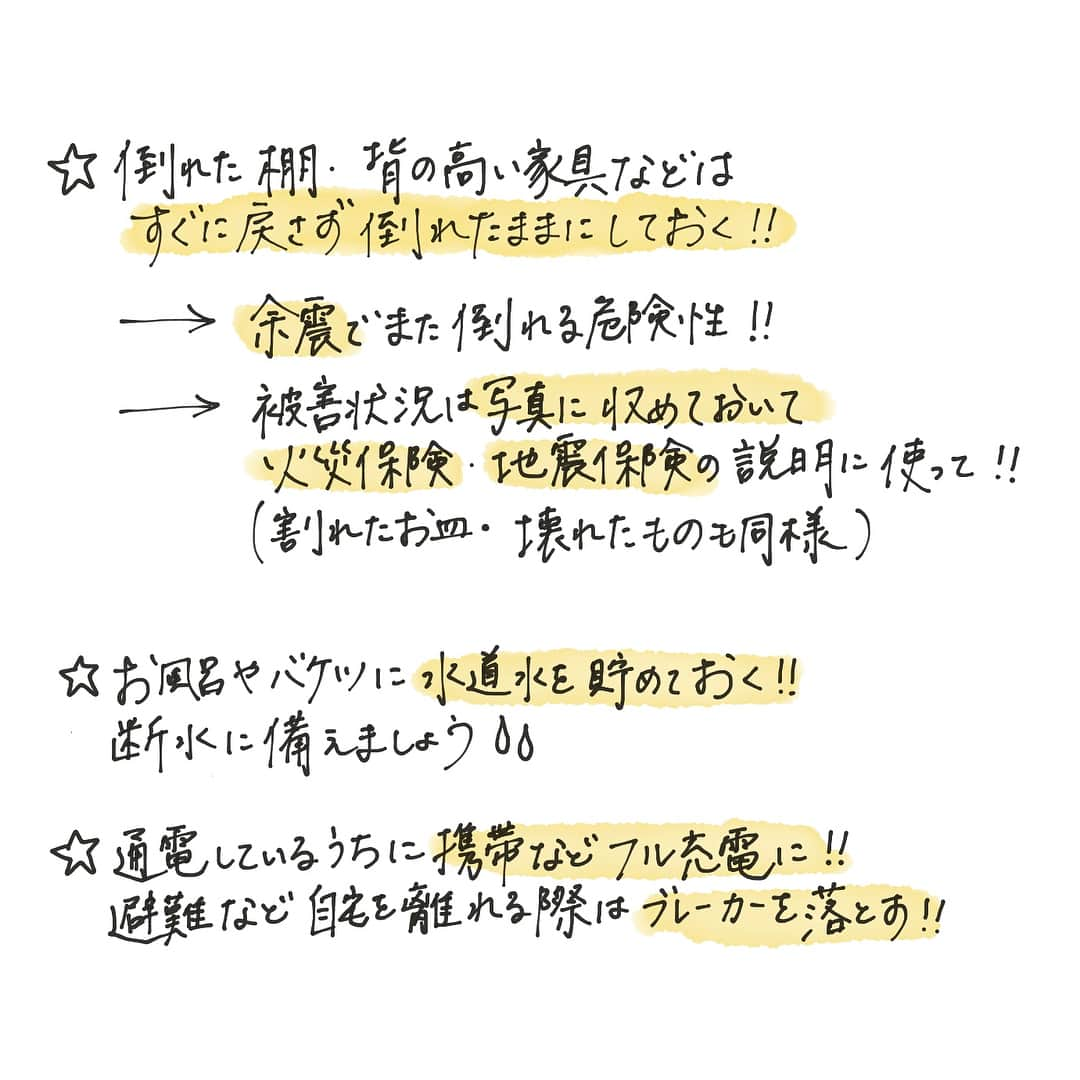 ☆ 倒れた棚・背の高い家具などは
すぐに戻さず倒れたままにしておく!!
→ 余震でまた倒れる危険性!!
→ 被害状況は写真に収めておいて
火災保険・地震保険の説明に使って!!
(割れたお皿・壊れたものも同様)
☆ お風呂やバケツに水道水を貯めておく!!
断水に備えましょう
☆ 通電しているうちに携帯などフル充電に!!
避難など自宅を離れる際はブレーカーを落とす!!